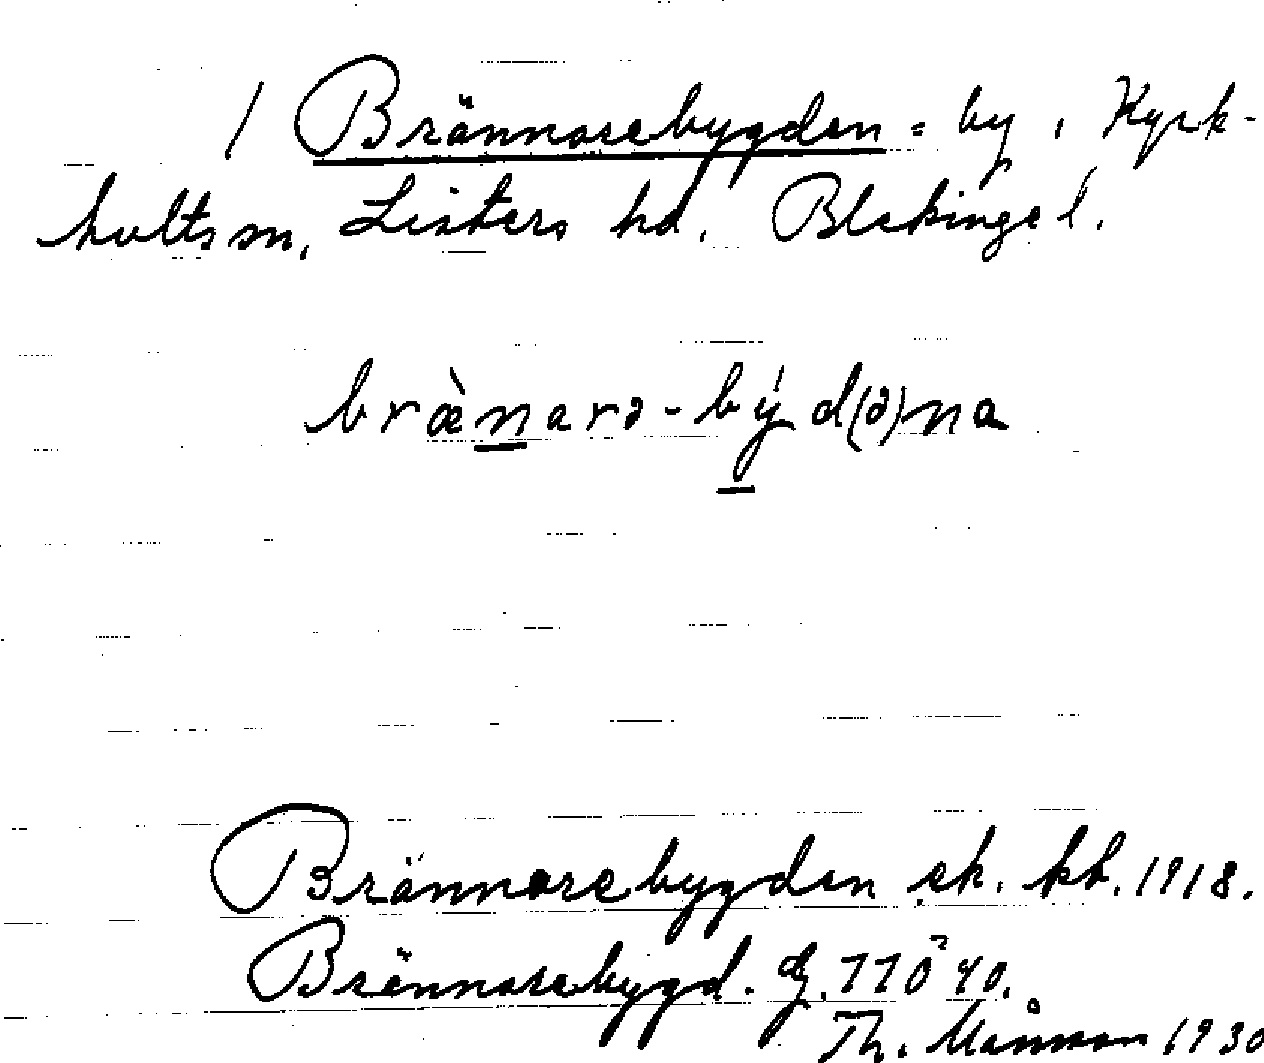 / Brännarebygden = by i Kyrk-
hults sn, Listers hd. Blekinge l.
bræ̀narə-býd(ə)na
Brännarebygden ek. kb. 1918.
Brännarebygd. 1930
Th. Månsson 1930